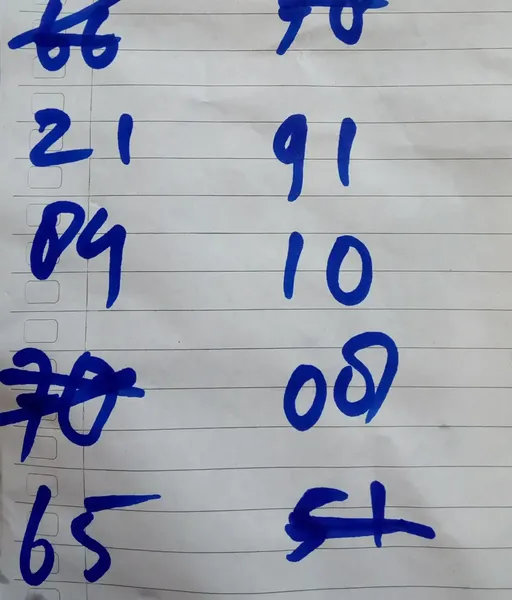 66
21 91
84 10
70 08
65 51